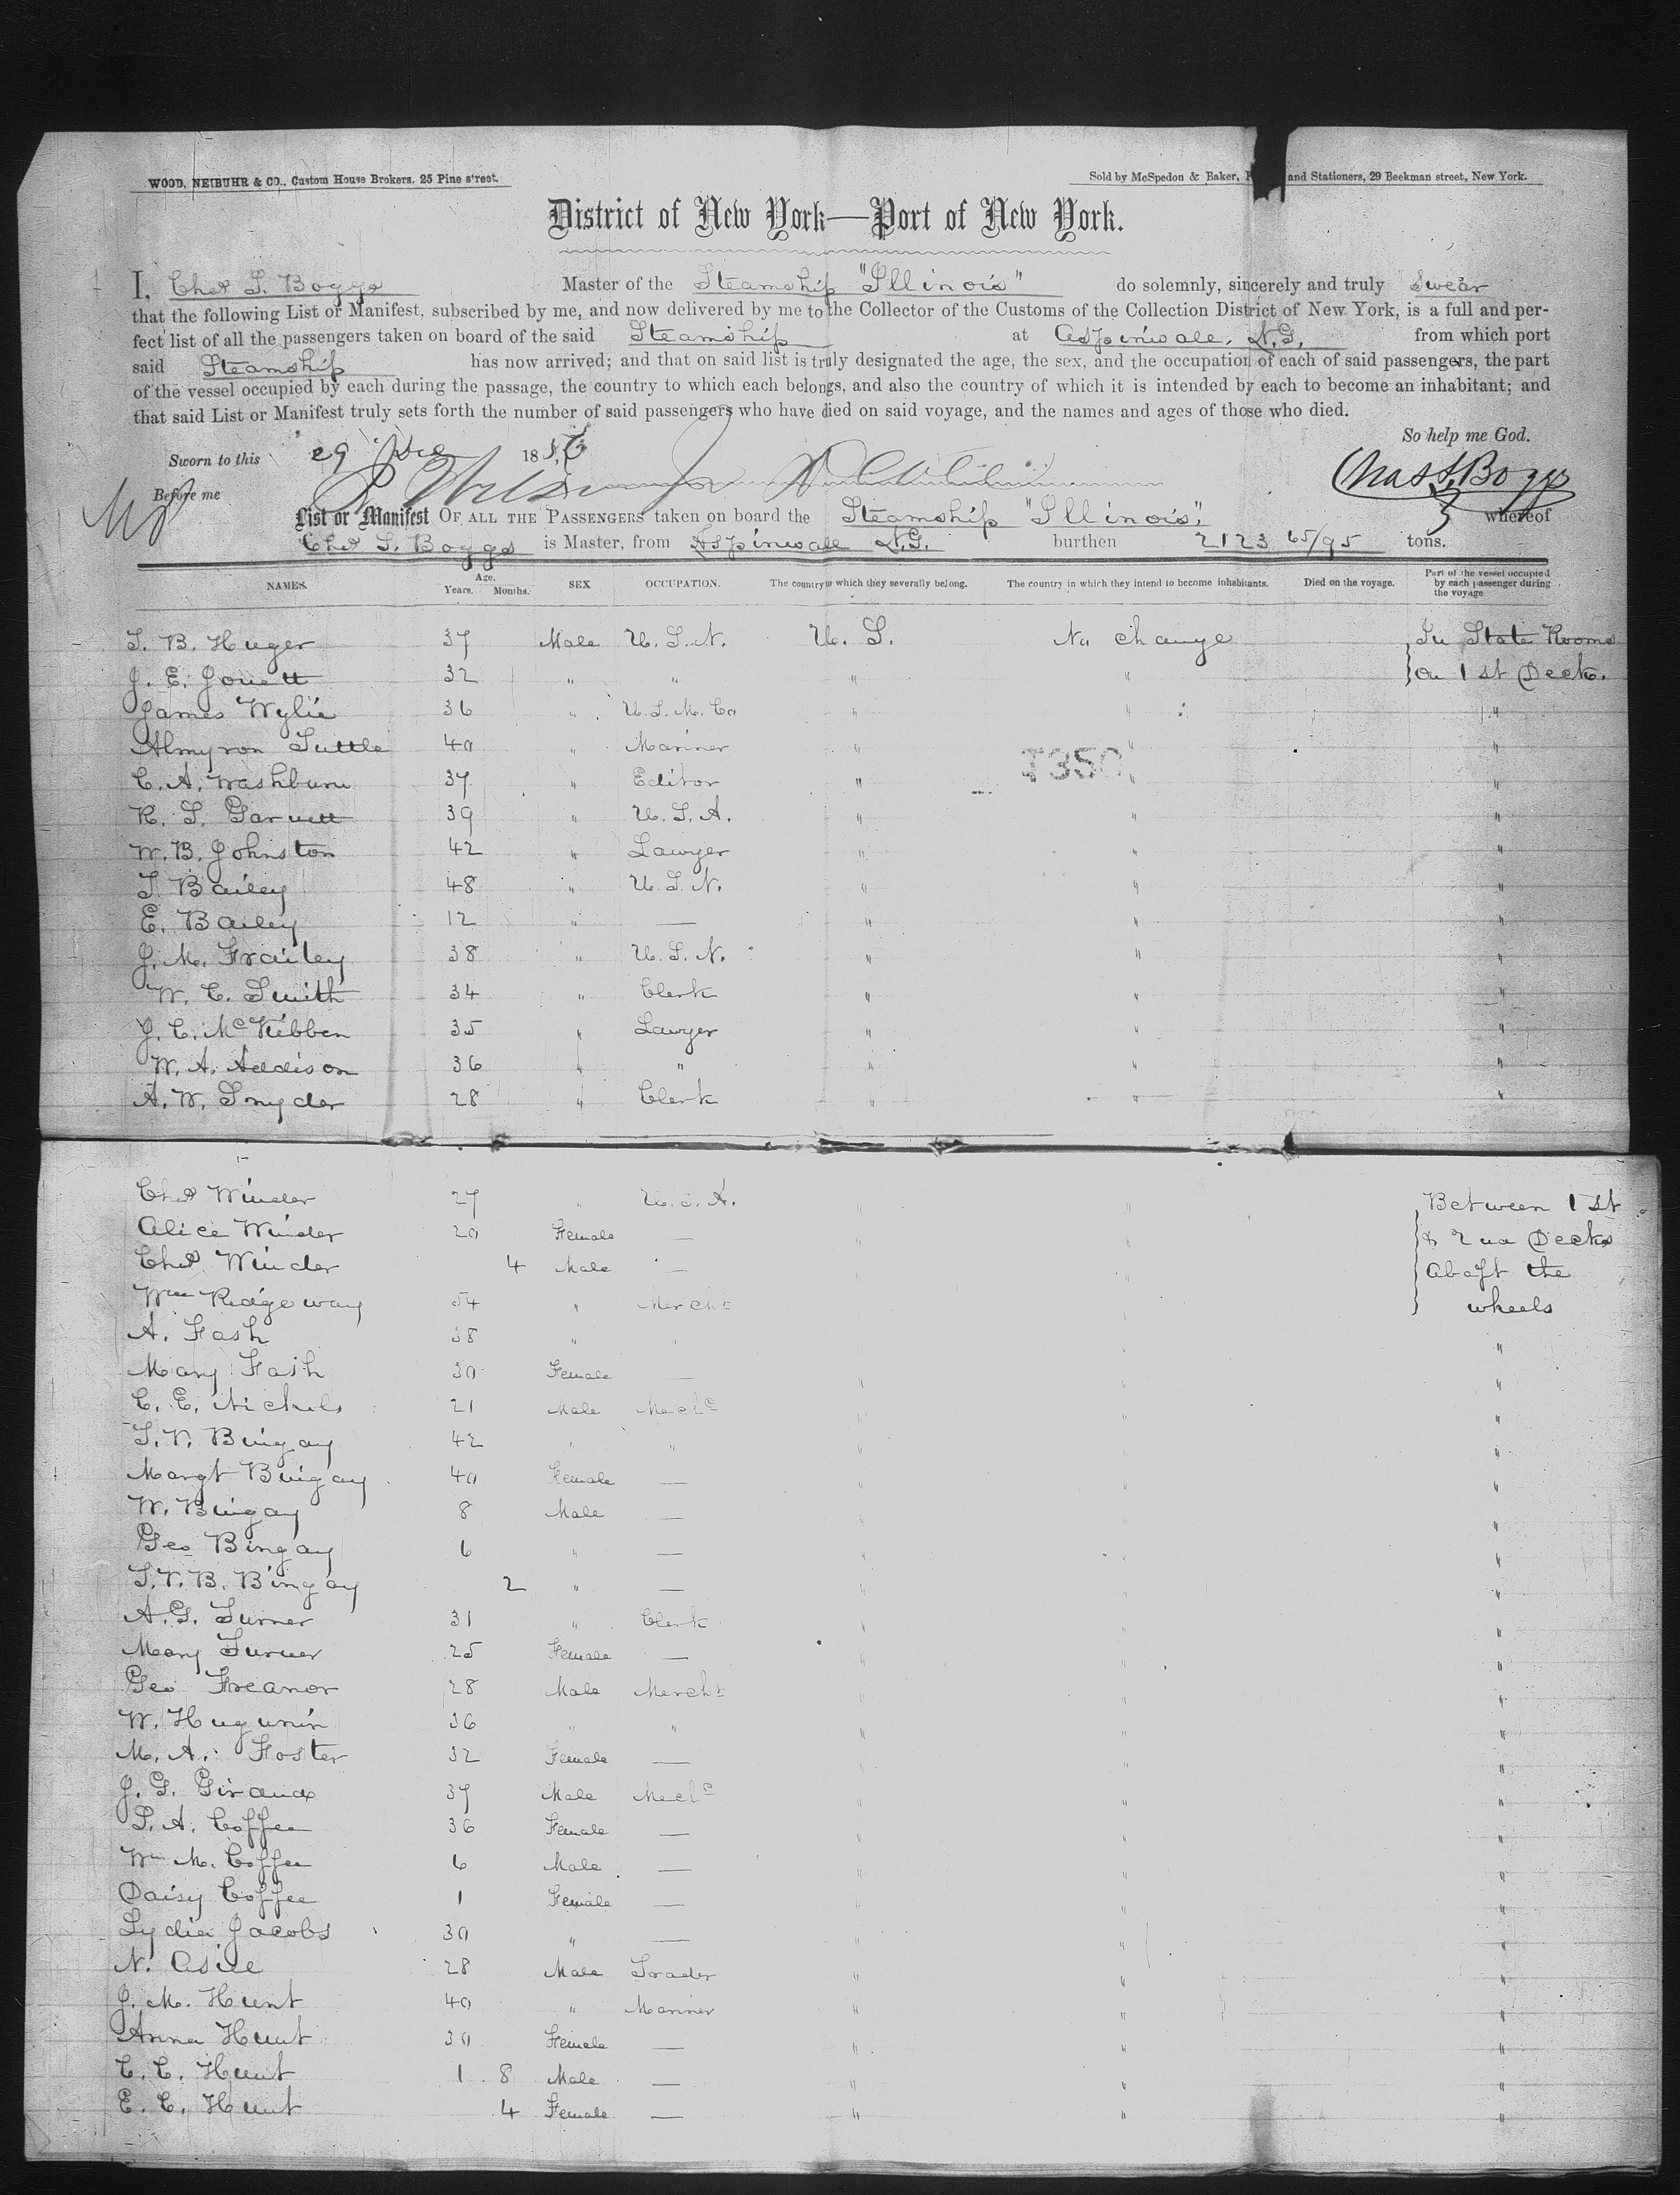 WOOD, NEIBUHR & CO., Custom House Brokers, 25 Pine street.
Sold by McSpedon & Baker, and Stationers, 29 Beekman street, New York.
District of New York—Port of New York.
I, Chas S. Boggs Master of the Steamship "Illinois" do solemnly, sincerely and truly swear
that the following List or Manifest, subscribed by me, and now delivered by me to the Collector of the Customs of the Collection District of New York, is a full and per-
fect list of all the passengers taken on board of the said Steamship at Aspinwall, N.G. from which port
said Steamship has now arrived; and that on said list is truly designated the age, the sex, and the occupation of each of said passengers, the part
of the vessel occupied by each during the passage, the country to which each belongs, and also the country of which it is intended by each to become an inhabitant; and
that said List or Manifest truly sets forth the number of said passengers who have died on said voyage, and the names and ages of those who died.
So help me God.
Sworn to this 29 Dec 1856
Chas S. Boggs
Before me
List or Manifest OF ALL THE PASSENGERS taken on board the Steamship "Illinois", whereof
Chas S. Boggs is Master, from Aspinwall N.G. burthen 2123 65/95 tons.
NAMES. Age. Years. Months. SEX OCCUPATION. The country to which they severally belong. The country in which they intend to become inhabitants. Died on the voyage. Part of the vessel occupied by each passenger during the voyage
T. B. Huger 37 Male U.S.N. U.S. No change In State Rooms
J. E. Jouett 32 " " " " on 1st Deck.
James Wylie 36 " U.S.M. Co " " "
Almyron Tuttle 40 " Mariner " " "
C. A. Washburn 37 " Editor " " "
R. S. Garnett 39 " U.S.A. " " "
W. B. Johnston 42 " Lawyer " " "
T. Bailey 48 " U.S.N. " " "
E. Bailey 12 " — " " "
J. M. Frailey 38 " U.S.N. " " "
W. C. Smith 34 " Clerk " " "
J. C. McKibben 35 " Lawyer " " "
W. A. Addison 36 " " " " "
A. W. Snyder 28 " Clerk " " "
Chas Winder 27 " U.S.A. " " Between 1st
Alice Winder 20 Female — " " & 2nd Decks
Chas Winder 4 Male — " " abaft the
Wm Ridgeway 54 " Mercht " " wheels
A. Fash 38 " " " " "
Mary Fash 30 Female — " " "
C. E. Nichols 21 Male Mechc " " "
T. V. Bingay 42 " " " " "
Margt Bingay 40 Female — " " "
W. Bingay 8 Male — " " "
Geo Bingay 6 " — " " "
T. V. B. Bingay 2 " — " " "
A. G. Turner 31 " Clerk " " "
Mary Turner 25 Female — " " "
Geo Freanor 28 Male Mercht " " "
W. Hugunin 36 " " " " "
M. A. Foster 32 Female — " " "
J. G. Giraud 37 Male Mechc " " "
P. A. Coffee 36 Female — " " "
Wm M. Coffee 6 Male — " " "
Daisy Coffee 1 Female — " " "
Lydia Jacobs 30 " — " " "
N. 28 Male Trader " " "
J. M. Hunt 40 " Mariner " " "
Anna Hunt 30 Female — " " "
C. C. Hunt 1 8 Male — " " "
E. C. Hunt 4 Female — " " "